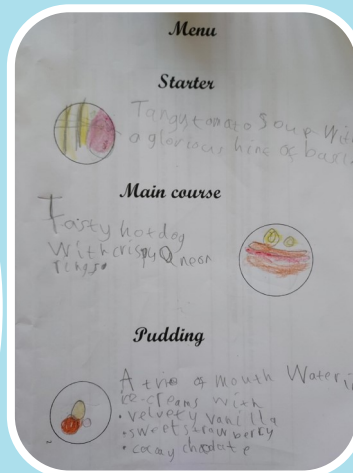 Menu
Starter
Tangy tomato Soup With
a glorious hint of basil
Main course
Tasty hotdog
With crispy Onoon
rings.
Pudding
A trio of mouth Wateri
ice-creams with
• velvety vanilla
• sweet strawberry
• cocoay chocolate